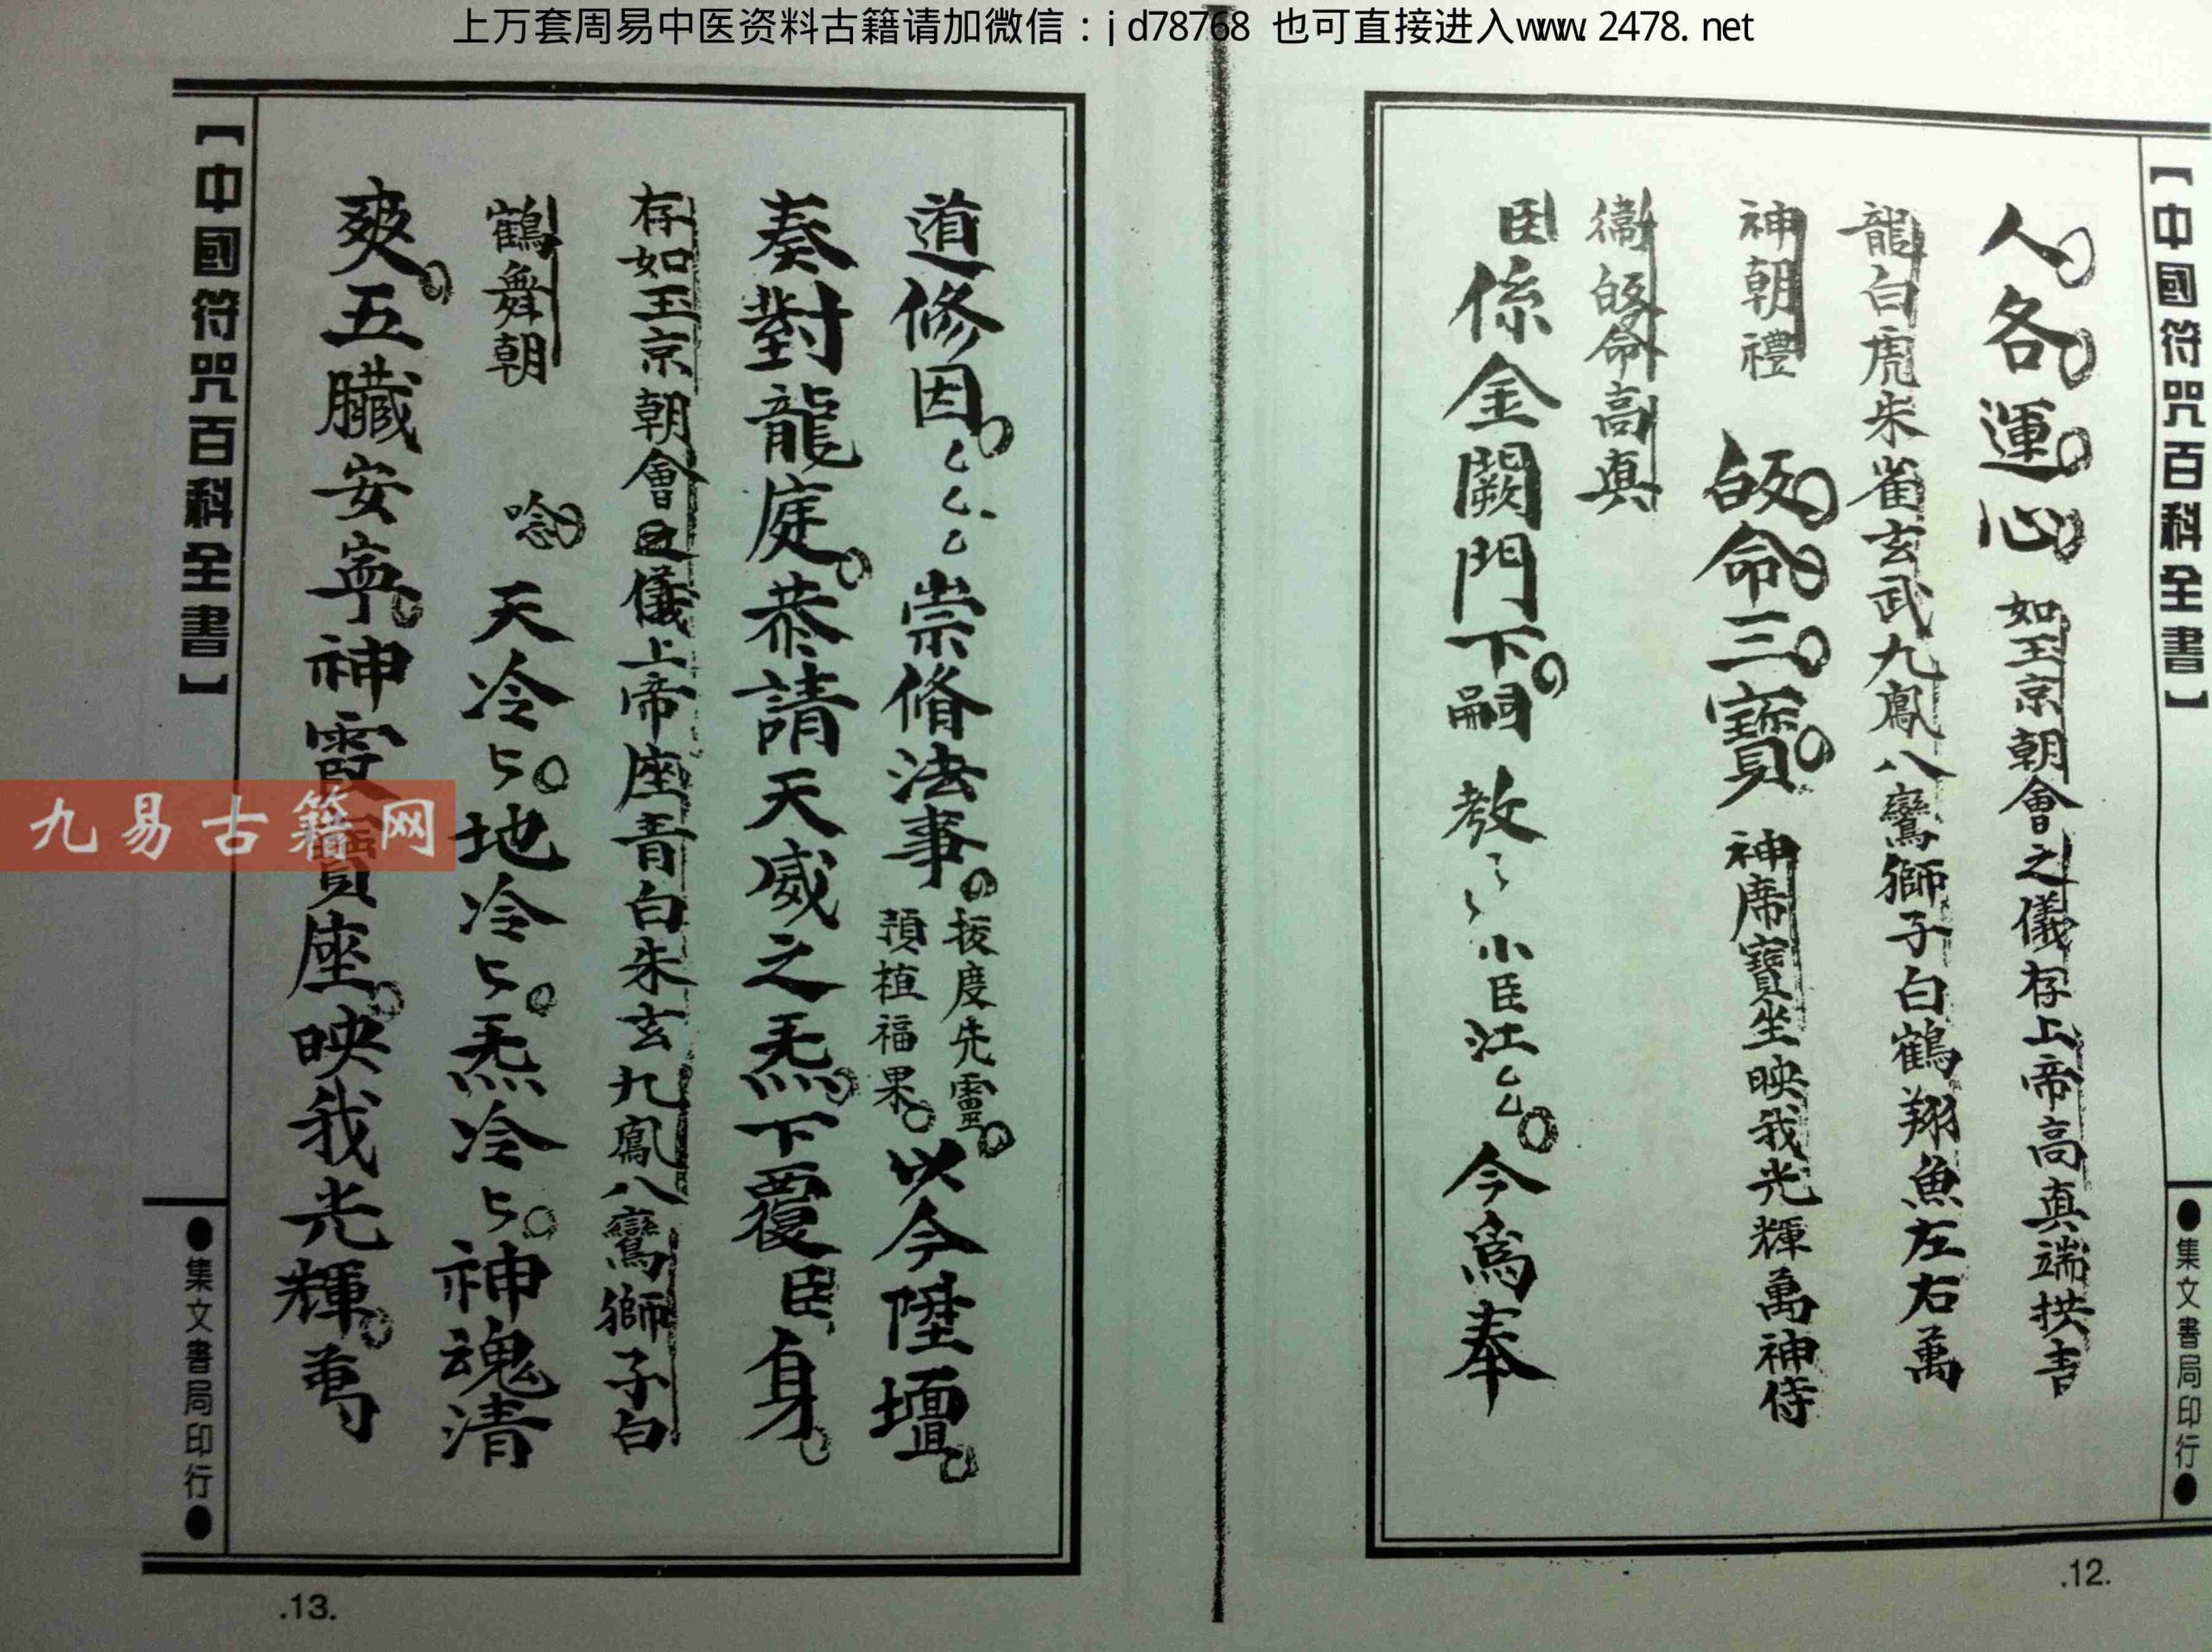 上万套周易中医资料古籍请加微信：jd78768 也可直接进入www.2478.net
【中國符咒百科全書】
●集文書局印行●
人各運心 如玉京朝會之儀存上帝高真端拱
龍白虎朱雀玄武九鳳八鸞獅子白鶴翔魚左右萬
神朝禮 皈命三寶 神席寶坐映我光輝萬神侍
衞皈命高真
臣係金闕門下嗣 教 小臣江乙乙 今為奉
.12.
道修因 乙乙乙 崇脩法事 拔度先靈
預植福果 以今陞壇
奏對龍庭恭請天威之炁下覆臣身
存如玉京朝會之儀上帝座青白朱玄九鳳八鸞獅子白
鶴舞朝 唸 天冷冷地冷冷炁冷冷神魂清
爽五臟安寧神霞寶座映我光輝萬
【中國符咒百科全書】
●集文書局印行●
.13.
九易古籍网